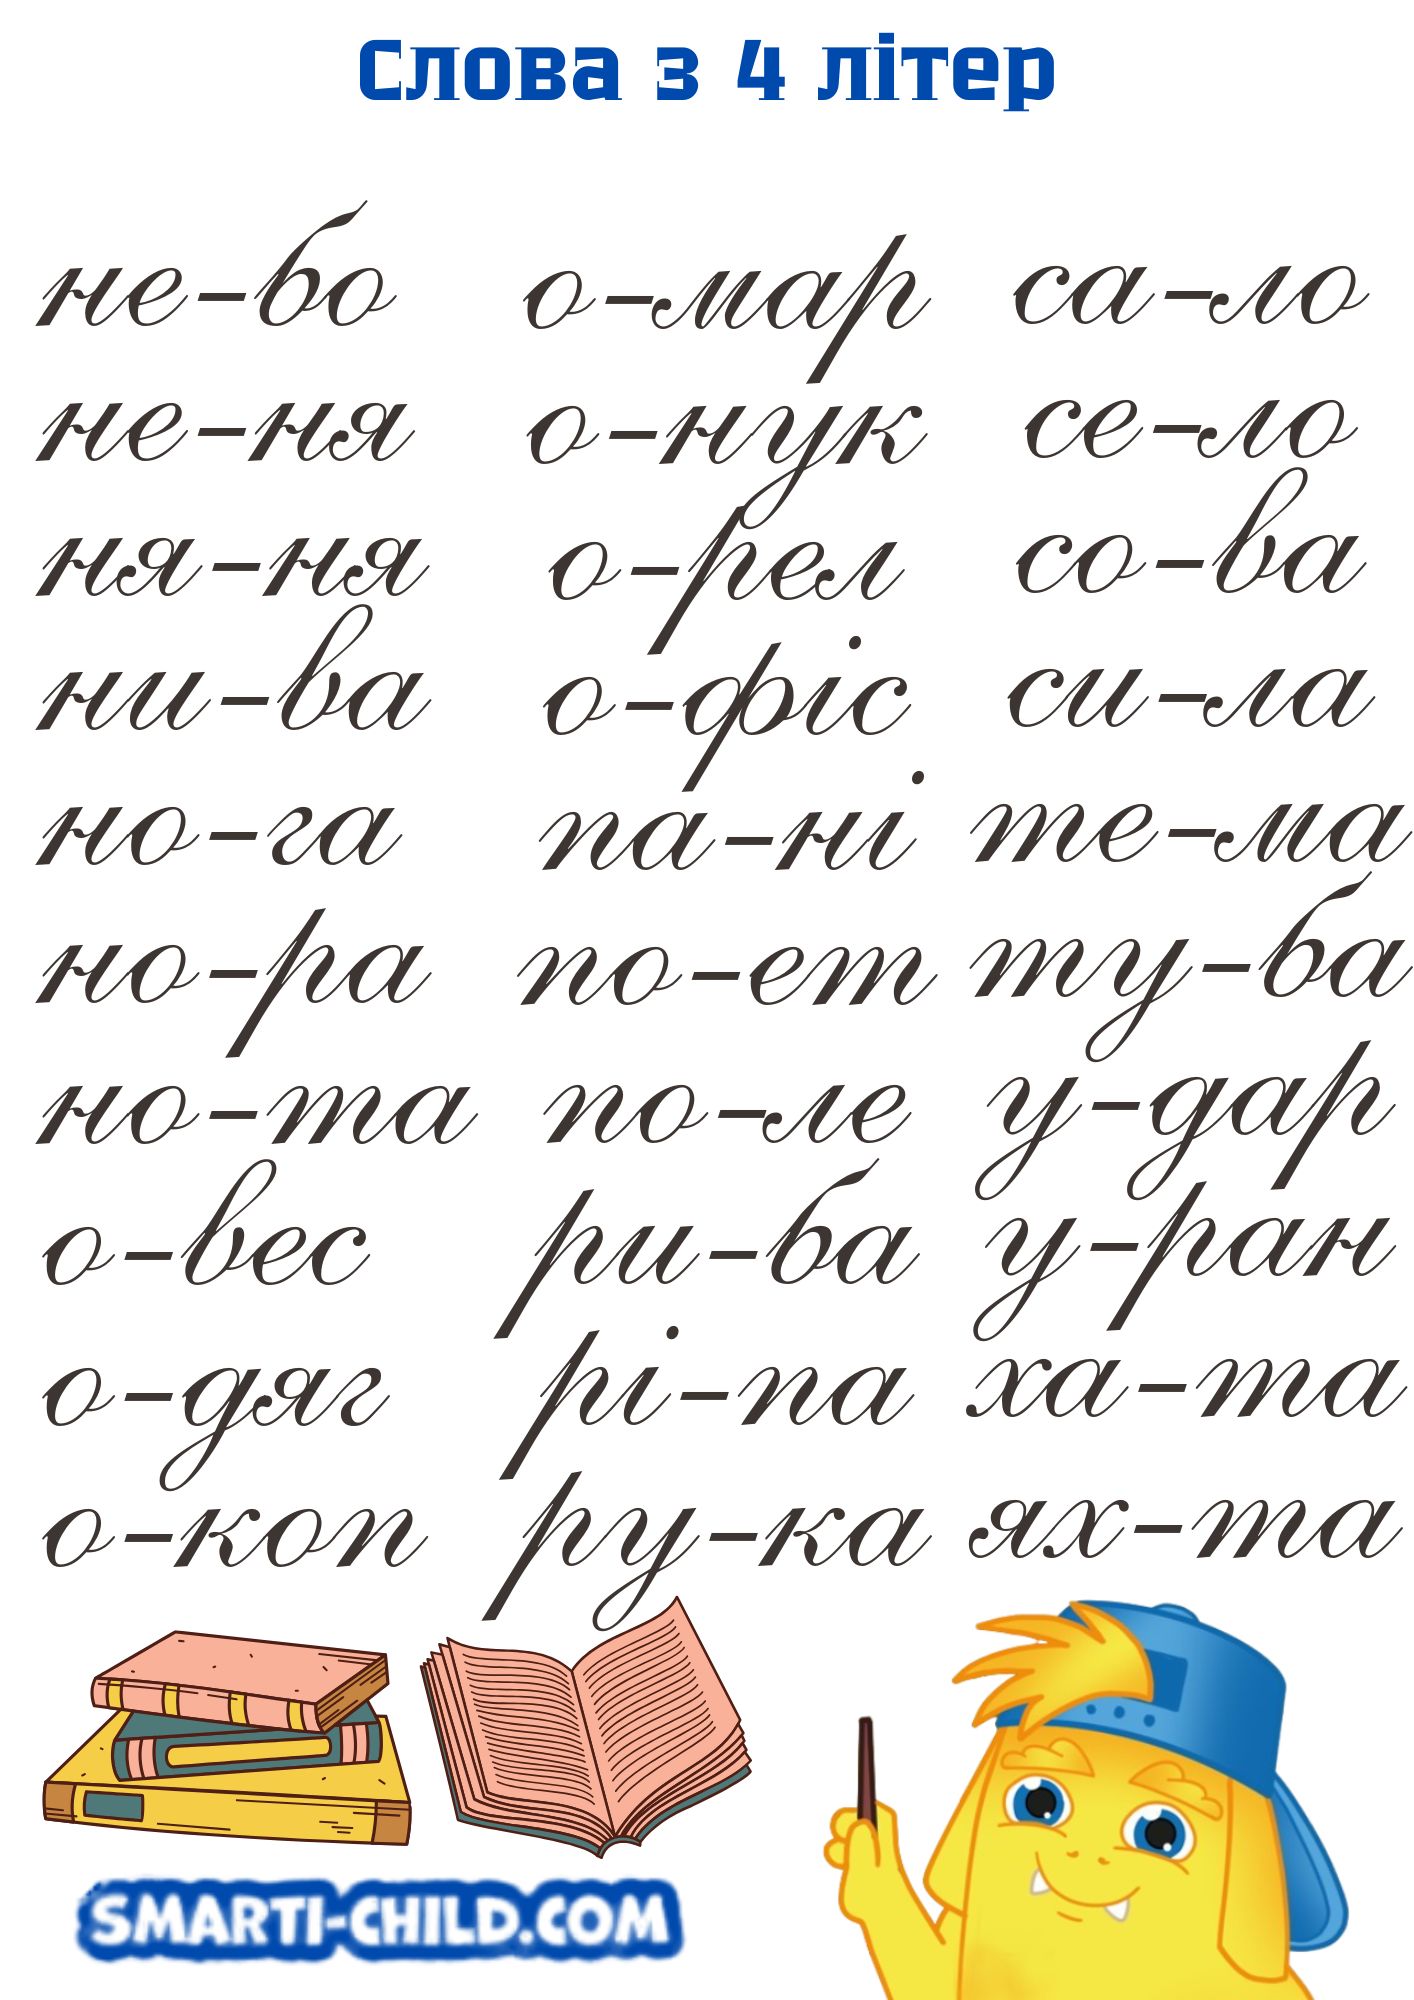 Слова з 4 літер
не-бо о-мар са-ло
не-ня о-нук се-ло
ня-ня о-рел со-ва
ни-ва о-фіс си-ла
но-га па-ні те-ма
но-ра по-ет ту-ба
но-та по-ле у-дар
о-вес ри-ба у-ран
о-дяг рі-па ха-та
о-коп ру-ка ях-та
SMARTI-CHILD.COM